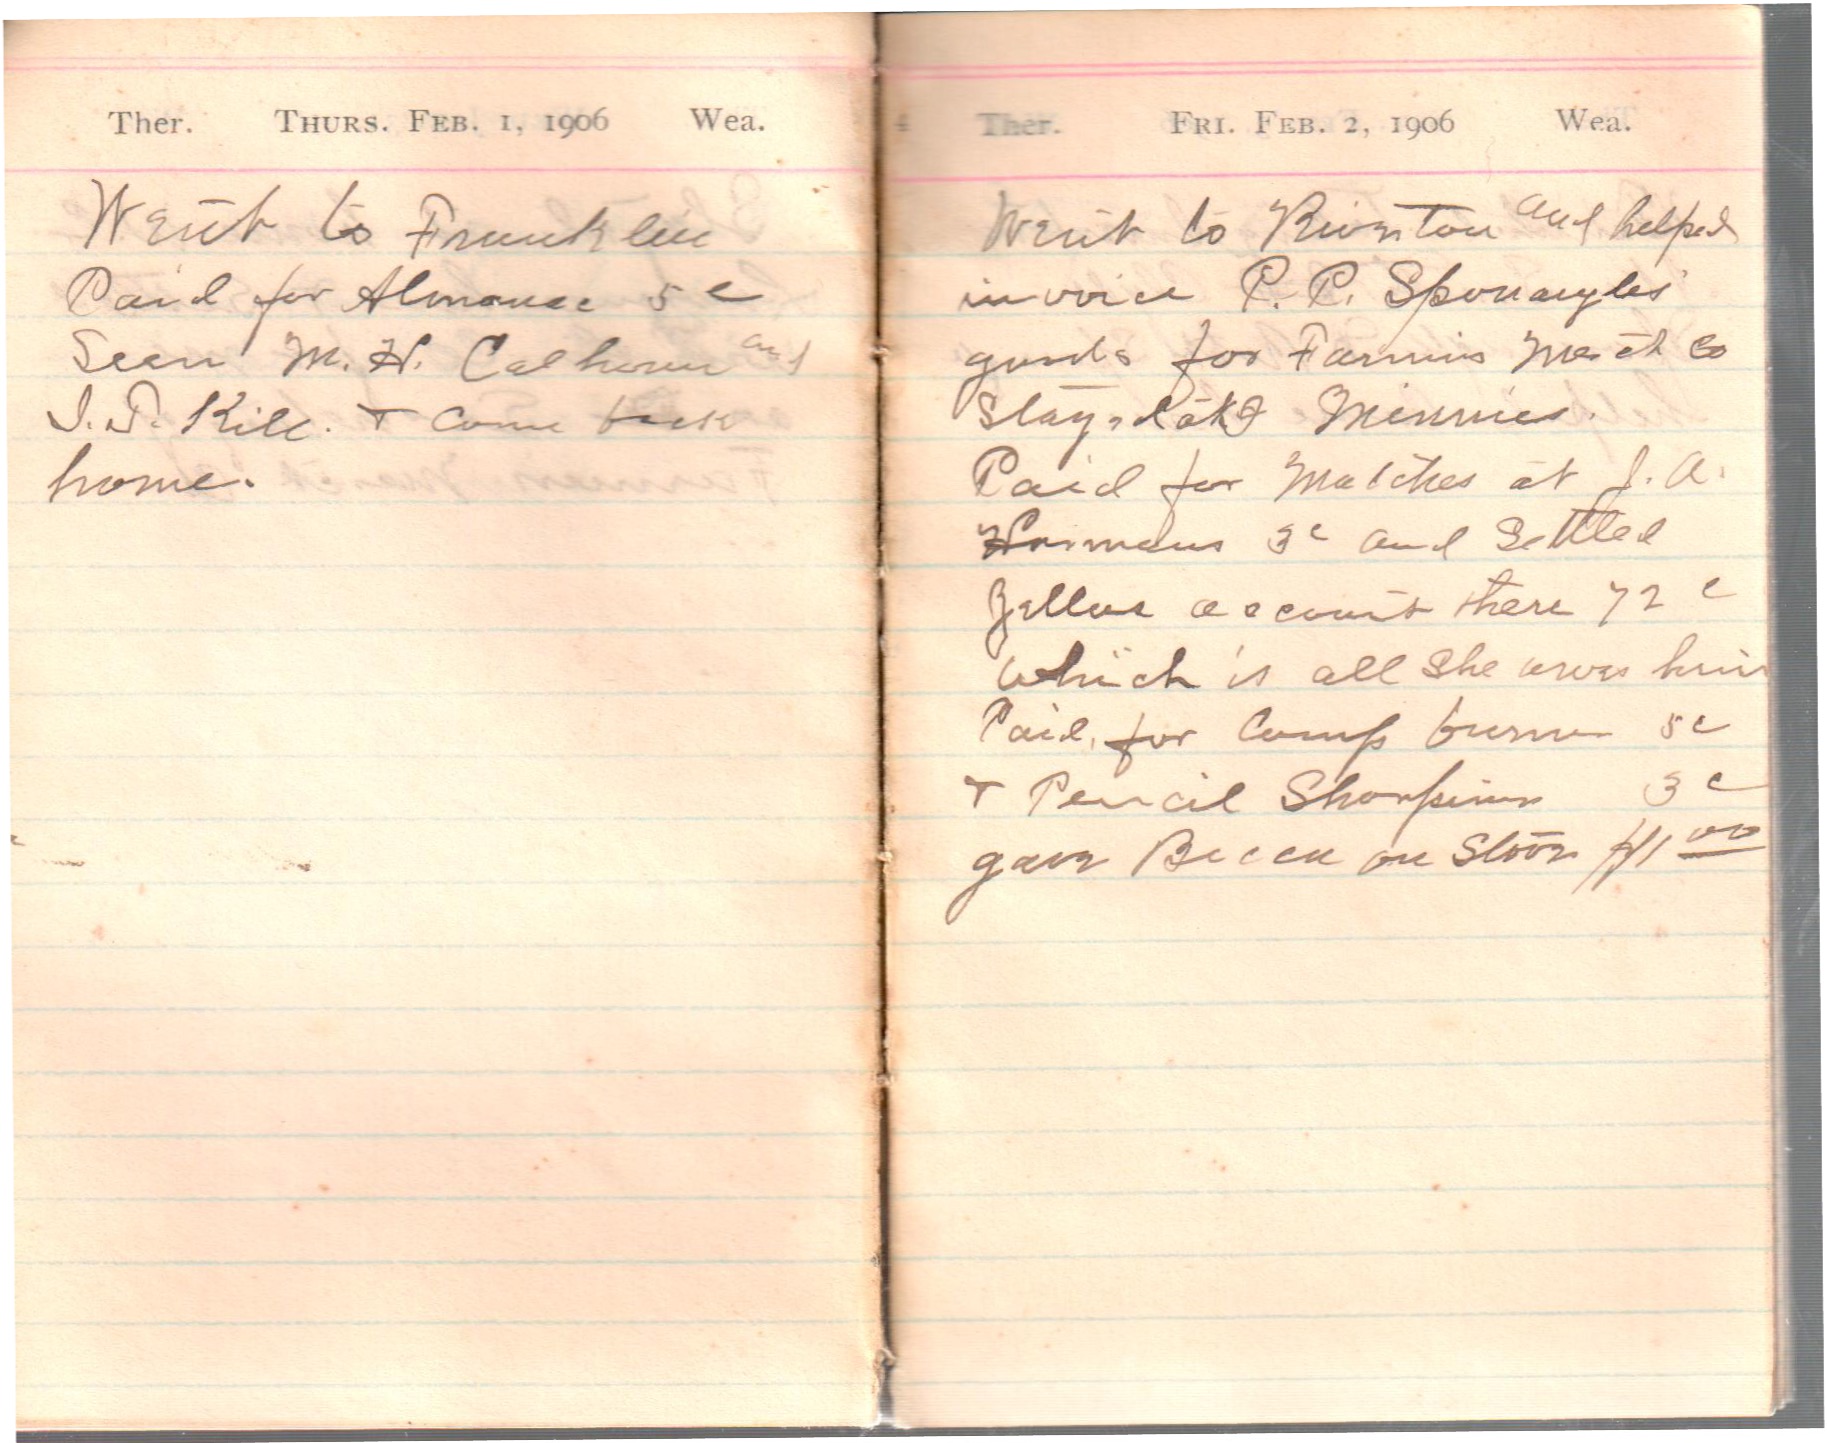 Ther. THURS. FEB. 1, 1906 Wea.
Went to Franklin
Paid for Almanac 5 c
Seen M. H. Calhoun and
I. T. Kile. + Come back
home.
Ther. FRI. FEB. 2, 1906 Wea.
Went to Riverton and helped
invoice P. P. Sponaugles
goods for Farmers Merct Co
Stayed at Minnies.
Paid for Matches at J. A.
Harmans 3c and Settled
account there 72 c
which is all She owes him
Paid for Lamp burner 5c
+ Pencil Sharpener 3 c
gave on Stove $1 00